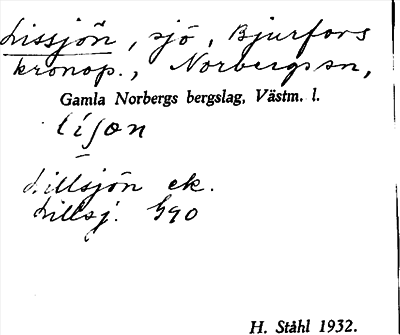 Lissjön, sjö, Bjurfors
kronop., Norbergs sn,
Gamla Norbergs bergslag, Västm. l.
Lillsjön ek.
Lillsj. G90
H. Ståhl 1932.